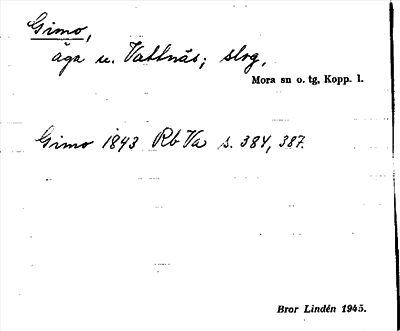 Gimo,
äga u. Vattnäs; slog,
Mora sn o. tg, Kopp. l.
Gimo 1843 Rb Va s. 384, 387.
Bror Lindén 1945.